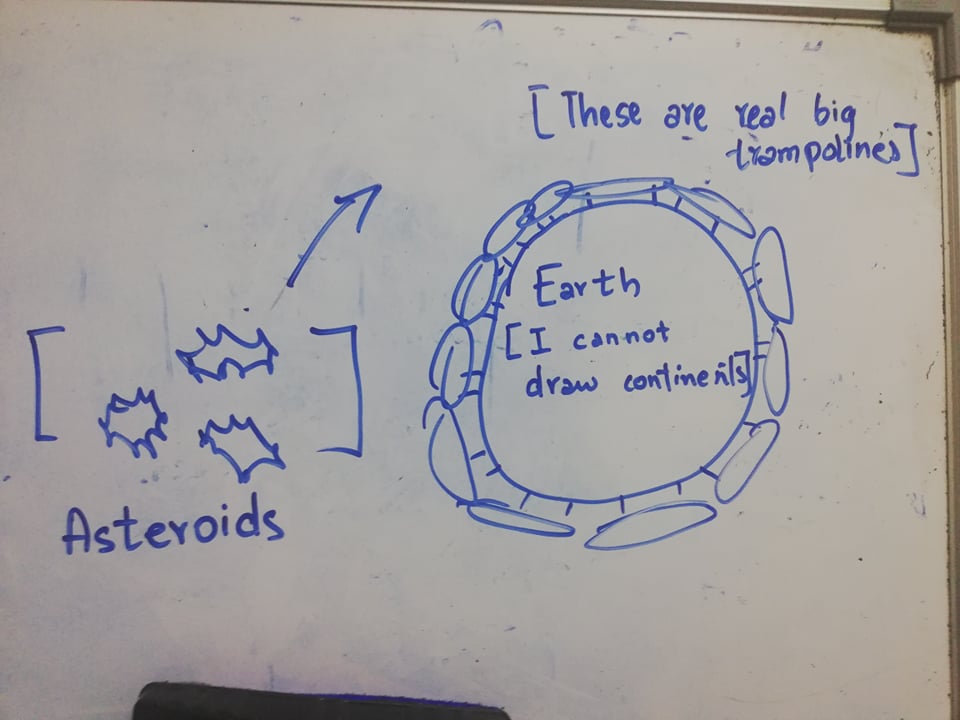 [These are real big
trampolines]
Earth
[I cannot
draw continents]
Asteroids